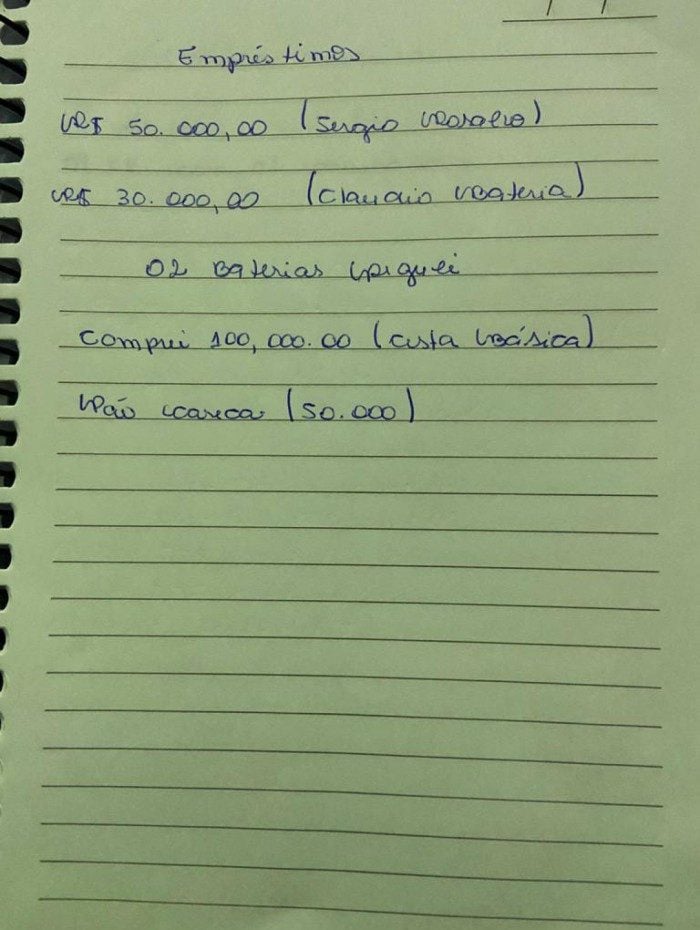 Empréstimos
R$ 50.000,00 (Sergio Rosalro)
R$ 30.000,00 (Claudio Bateria)
02 Baterias piguei
Comprei 100,000.00 (Cesta Básica)
Pão careca (50.000)